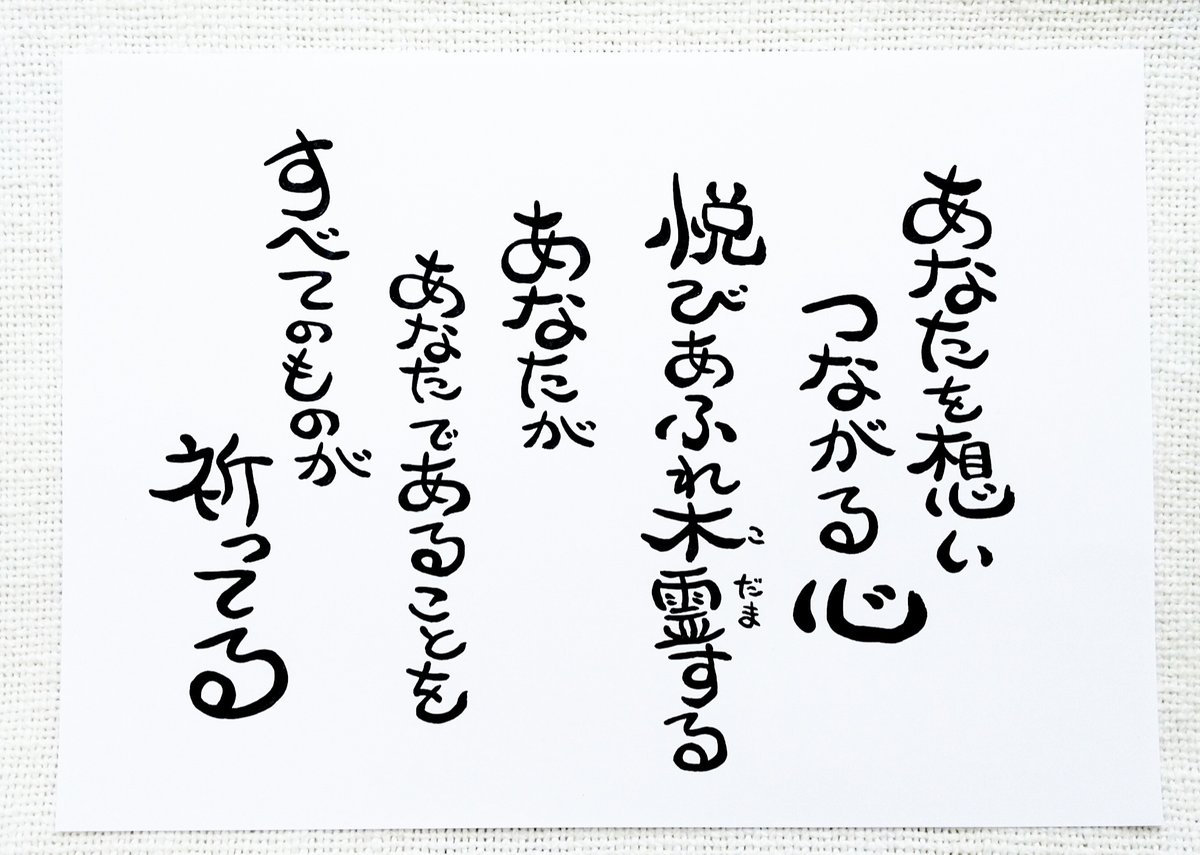 あなたを想い
つながる心
悦びあふれ木霊する
こだま
あなたが
あなたであることを
すべてのものが
祈ってる